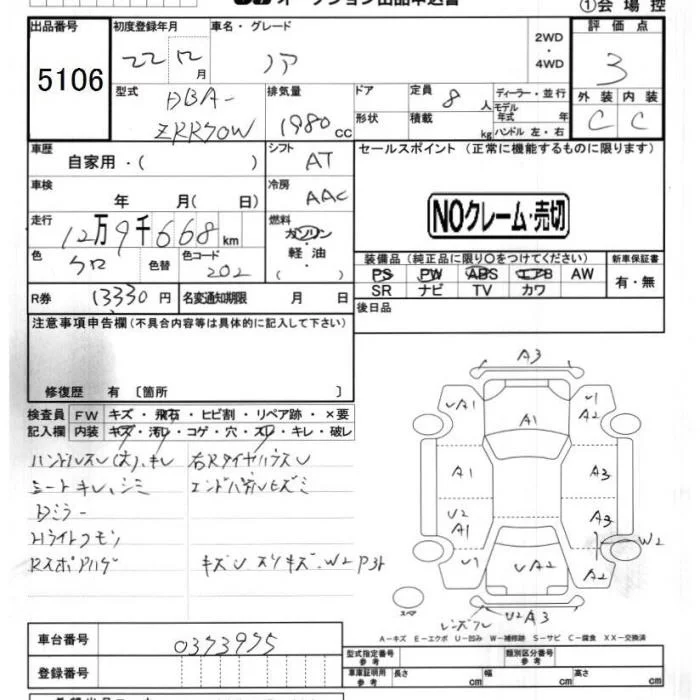 オークション出品申込書
①会場控
出品番号 初度登録年月 車名・グレード 2WD ・ 4WD 評価点
5106 22 12月 ノア 3
型式 DBA-ZRR70W 排気量 1980cc ドア 形状 定員 8人 積載 kg ディーラー・並行 モデル年式 年 ハンドル 左・右 外装 内装
C C
車歴 自家用・( ) シフト AT セールスポイント(正常に機能するものに限ります)
車検 年 月( 日) 冷房 AAC
NOクレーム・売切
走行 12万9千668km 燃料 ガソリン ・ 軽油 ・ ( )
色 クロ 色替 色コード 202
装備品(純正品に限り〇をつけてください) 新車保証書
PS PW ABS エアB AW 有・無
SR ナビ TV カワ
R券 13330円 名変通知期限 月 日 後日品
注意事項申告欄(不具合内容等は具体的に記入して下さい)
修復歴 有〔箇所 〕
検査員 FW キズ・飛石・ヒビ割・リペア跡・×要
記入欄 内装 キズ・汚レ・コゲ・穴・スレ・キレ・破レ
ハンドルスレ(大)、キレ 右RタイヤハウスU
シートキレ、シミ エンドパネルヒズミ
Dミラー
Hライトクモリ
Rスポアハゲ キズU スリキズ・W2 P3ト
A3
UA1 A1 U1 A2
A1 A3
U2 A1 A3
W2
U1 UA2 A2
スペア
レンズワレ U2A3
A-キズ E-エクボ U-凹み W-補修跡 S-サビ C-腐食 XX-交換済
車台番号 0373975
登録番号
型式指定番号 参考 類別区分番号 参考
車庫証明用 参考 長さ cm 幅 cm 高さ cm